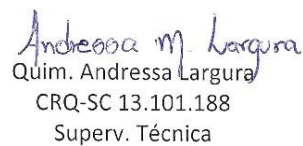 Andressa M. Largura
Quim. Andressa Largura
CRQ-SC 13.101.188
Superv. Técnica